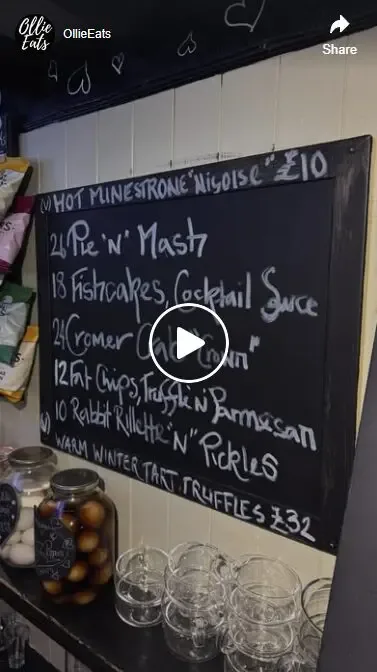 Ollie
Eats
OllieEats
Share
(V) HOT MINESTRONE "Niçoise" £10
26 Pie 'N' Mash
18 Fishcakes, Cocktail Sauce
24 Cromer Crab "Crown"
12 Fat Chips, Truffle 'n' Parmesan
10 Rabbit Rillette "N" Pickles
(V) WARM WINTER TART. TRUFFLES £32